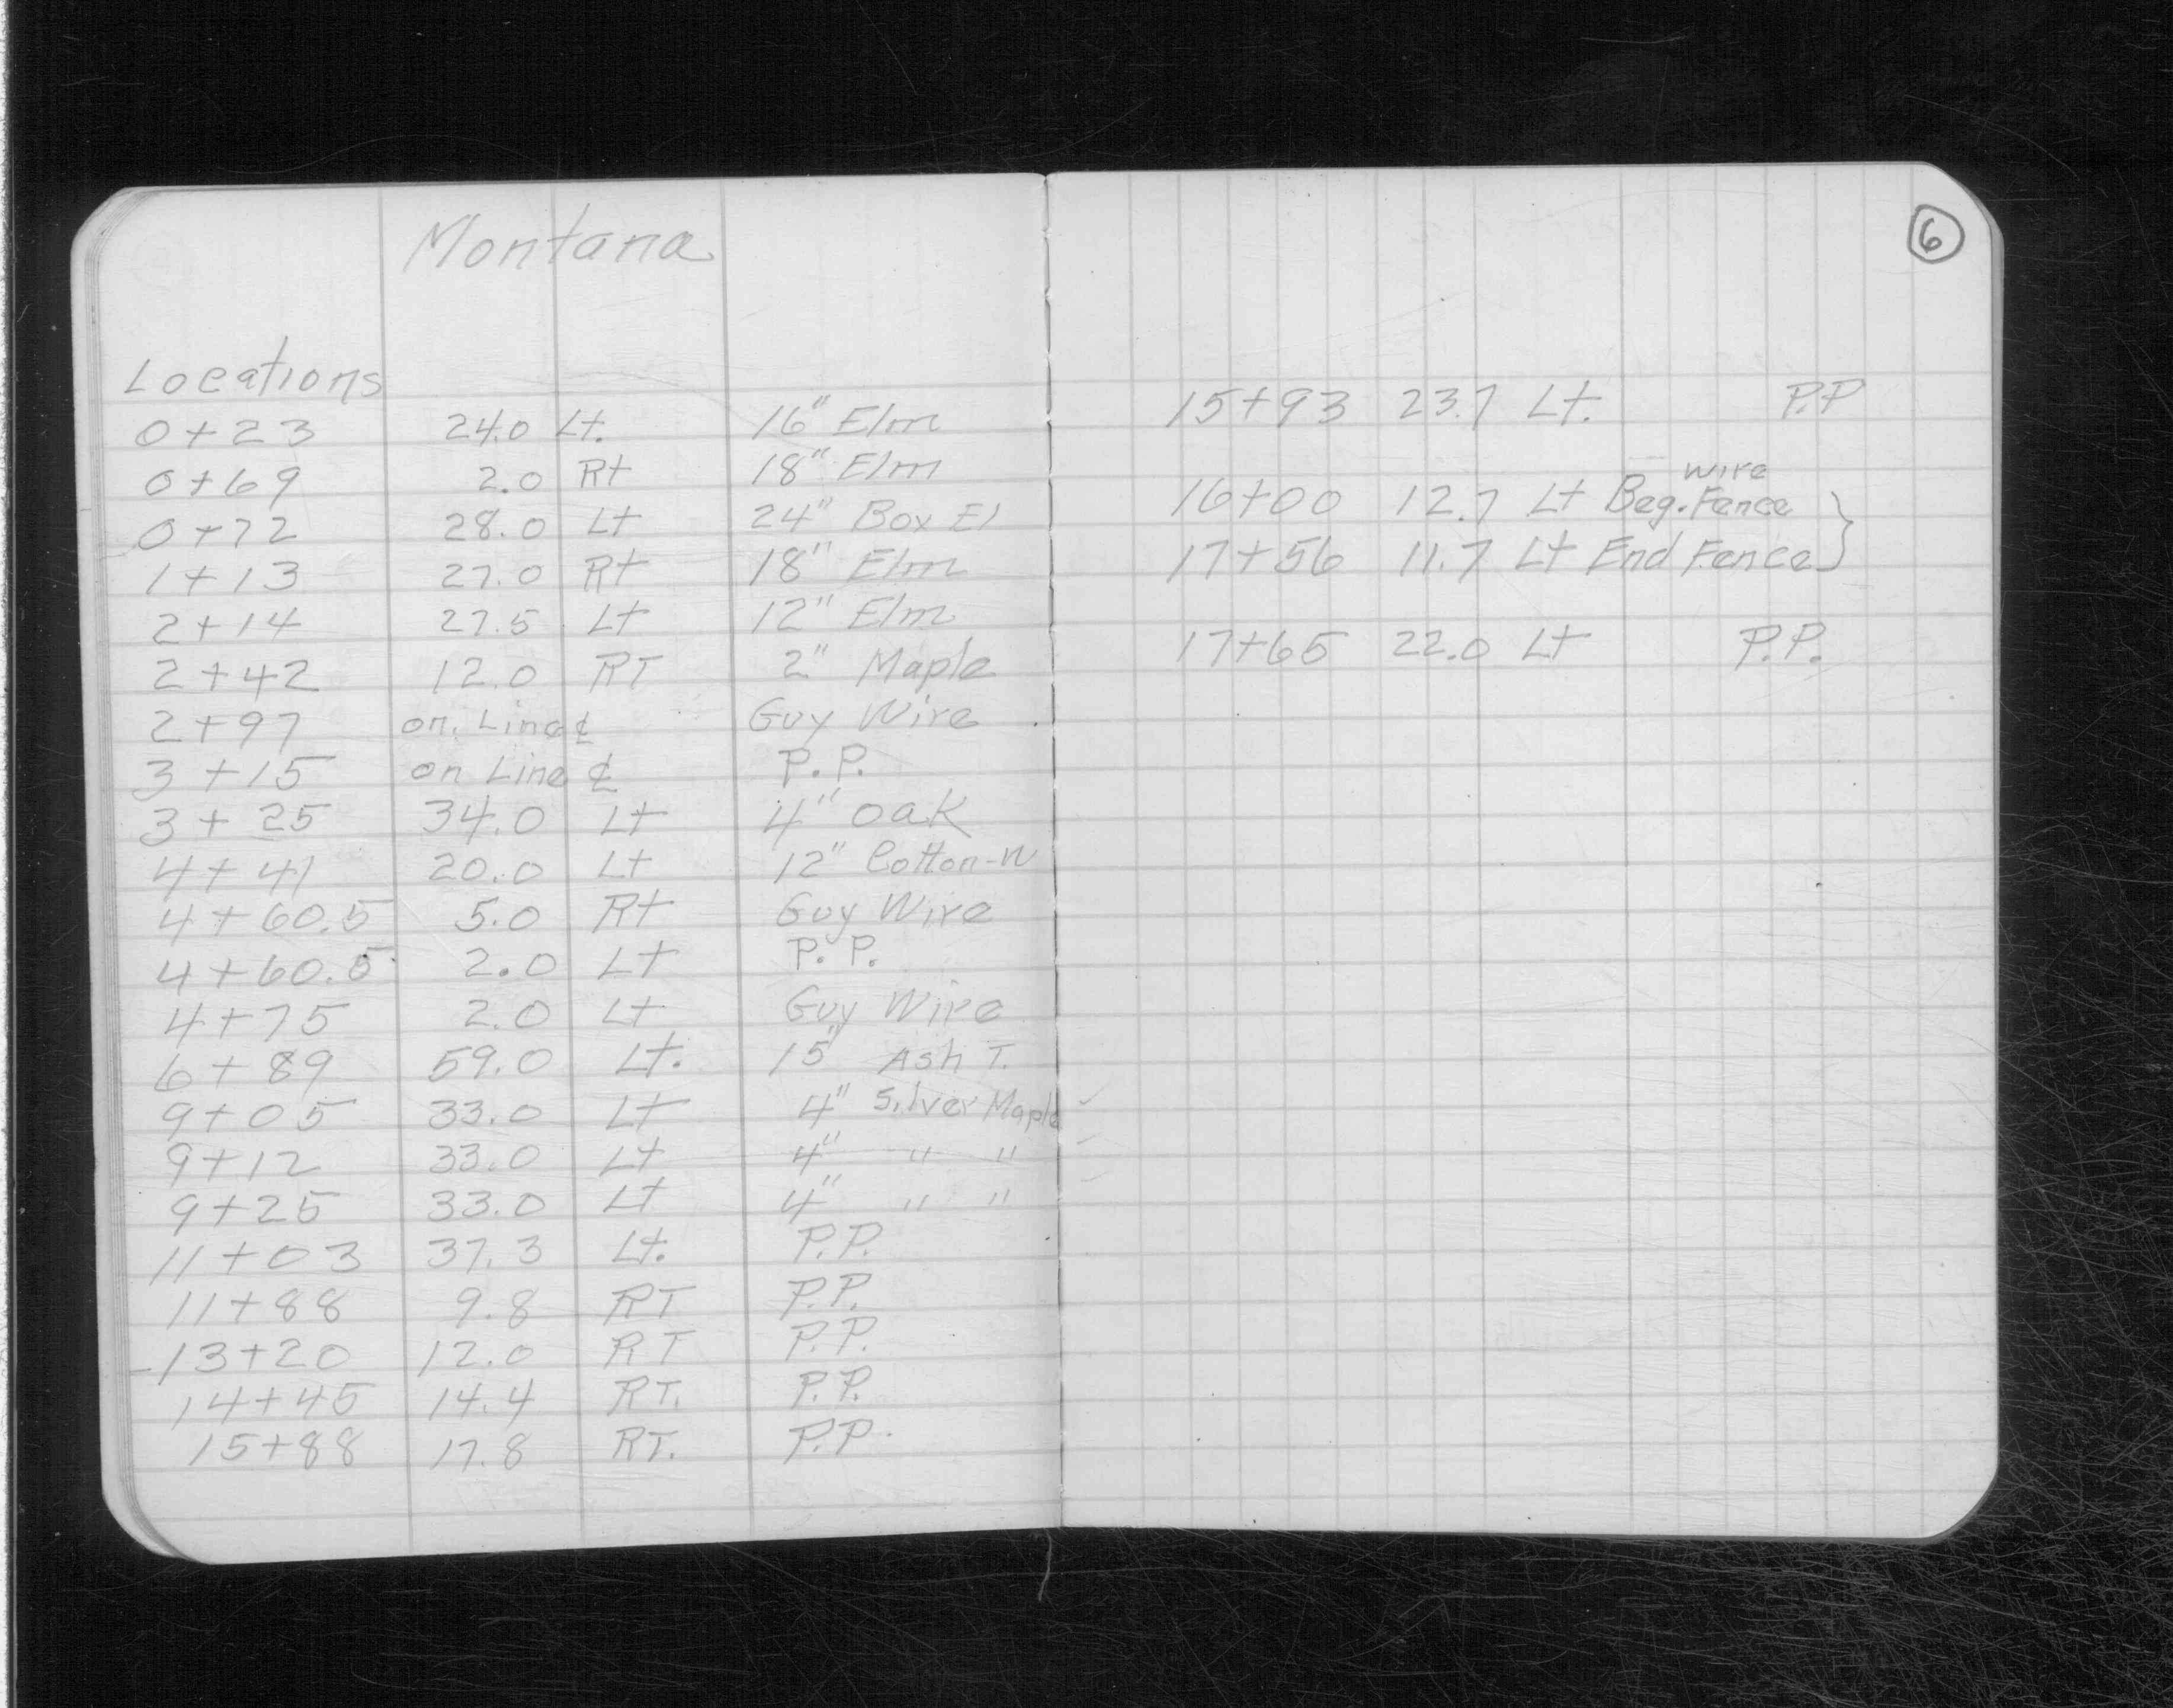 Montana
Locations
0+23 24.0 Lt. 16" Elm
0+69 2.0 Rt 18" Elm
0+72 28.0 Lt 24" Box El
1+13 27.0 Rt 18" Elm
2+14 27.5 Lt 12" Elm
2+42 12.0 RT 2" Maple
2+97 on. Line ⅊ Guy Wire
3+15 on Line ⅊ P.P.
3+25 34.0 Lt 4" Oak
4+41 20.0 Lt 12" Cotton-W
4+60.5 5.0 Rt Guy Wire
4+60.5 2.0 Lt P.P.
4+75 2.0 Lt Guy Wire
6+89 59.0 Lt. 15" Ash T.
9+05 33.0 Lt 4" Silver Maple
9+12 33.0 Lt 4" " "
9+25 33.0 Lt 4" " "
11+03 37.3 Lt. P.P.
11+88 9.8 RT P.P.
13+20 12.0 RT P.P.
14+45 14.4 RT. P.P.
15+88 17.8 RT. P.P.
6
15+93 23.7 Lt. P.P
wire
16+00 12.7 Lt Beg. Fence
17+56 11.7 Lt End Fence
17+65 22.0 Lt P.P.